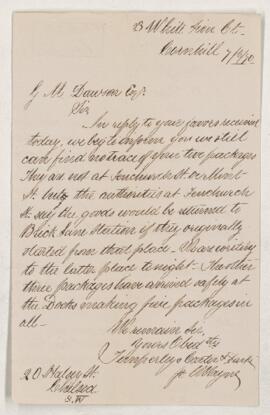 3 White Lion Ct.
Cornhill 7/6/70
G. M. Dawson Esqr.
Sir
In reply to your favors received
today, we beg to inform you we still
can find no trace of your two packages
They are not at Fenchurch St or
St. but the authorities at Fenchurch
St. say the goods would be returned to
Brick Lane Station if they originally
started from that place. I am writing
to the latter place to night. The other
three packages have arrived safely at
the Docks making five packages in
all.
We remain Sir,
Yours Obed
Timperley Carter &
20 Halsey St.
Chelsea
S.W